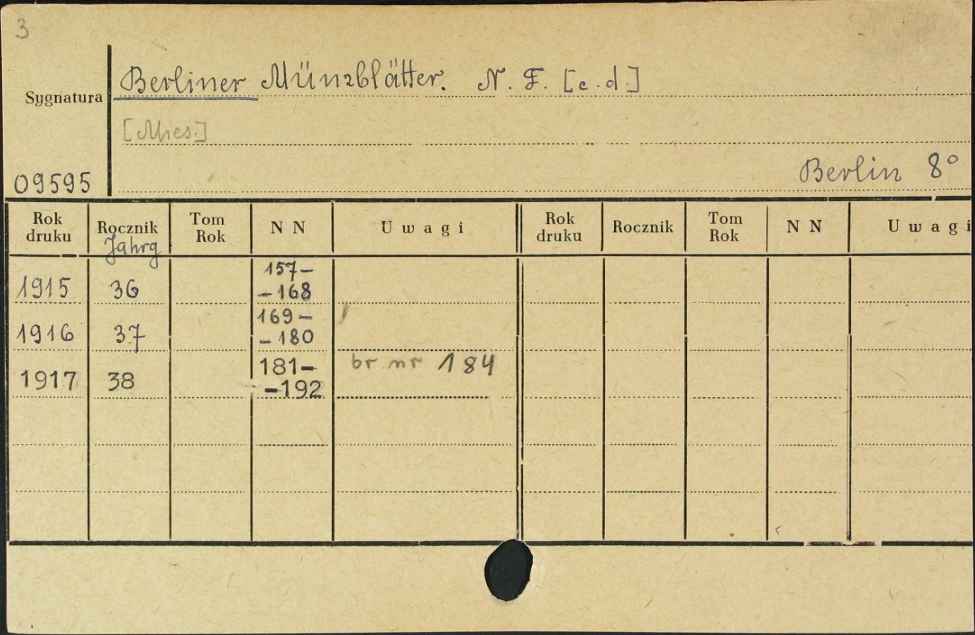 3
Sygnatura
Berliner Münzblätter. N. F. [c.d.]
[Mies.]
09595
Berlin 8°
Rok druku Rocznik Jahrg Tom Rok N N Uwagi Rok druku Rocznik Tom Rok N N Uwagi
1915 36 157–
–168
1916 37 169–
–180
1917 38 181– br nr 184
–192